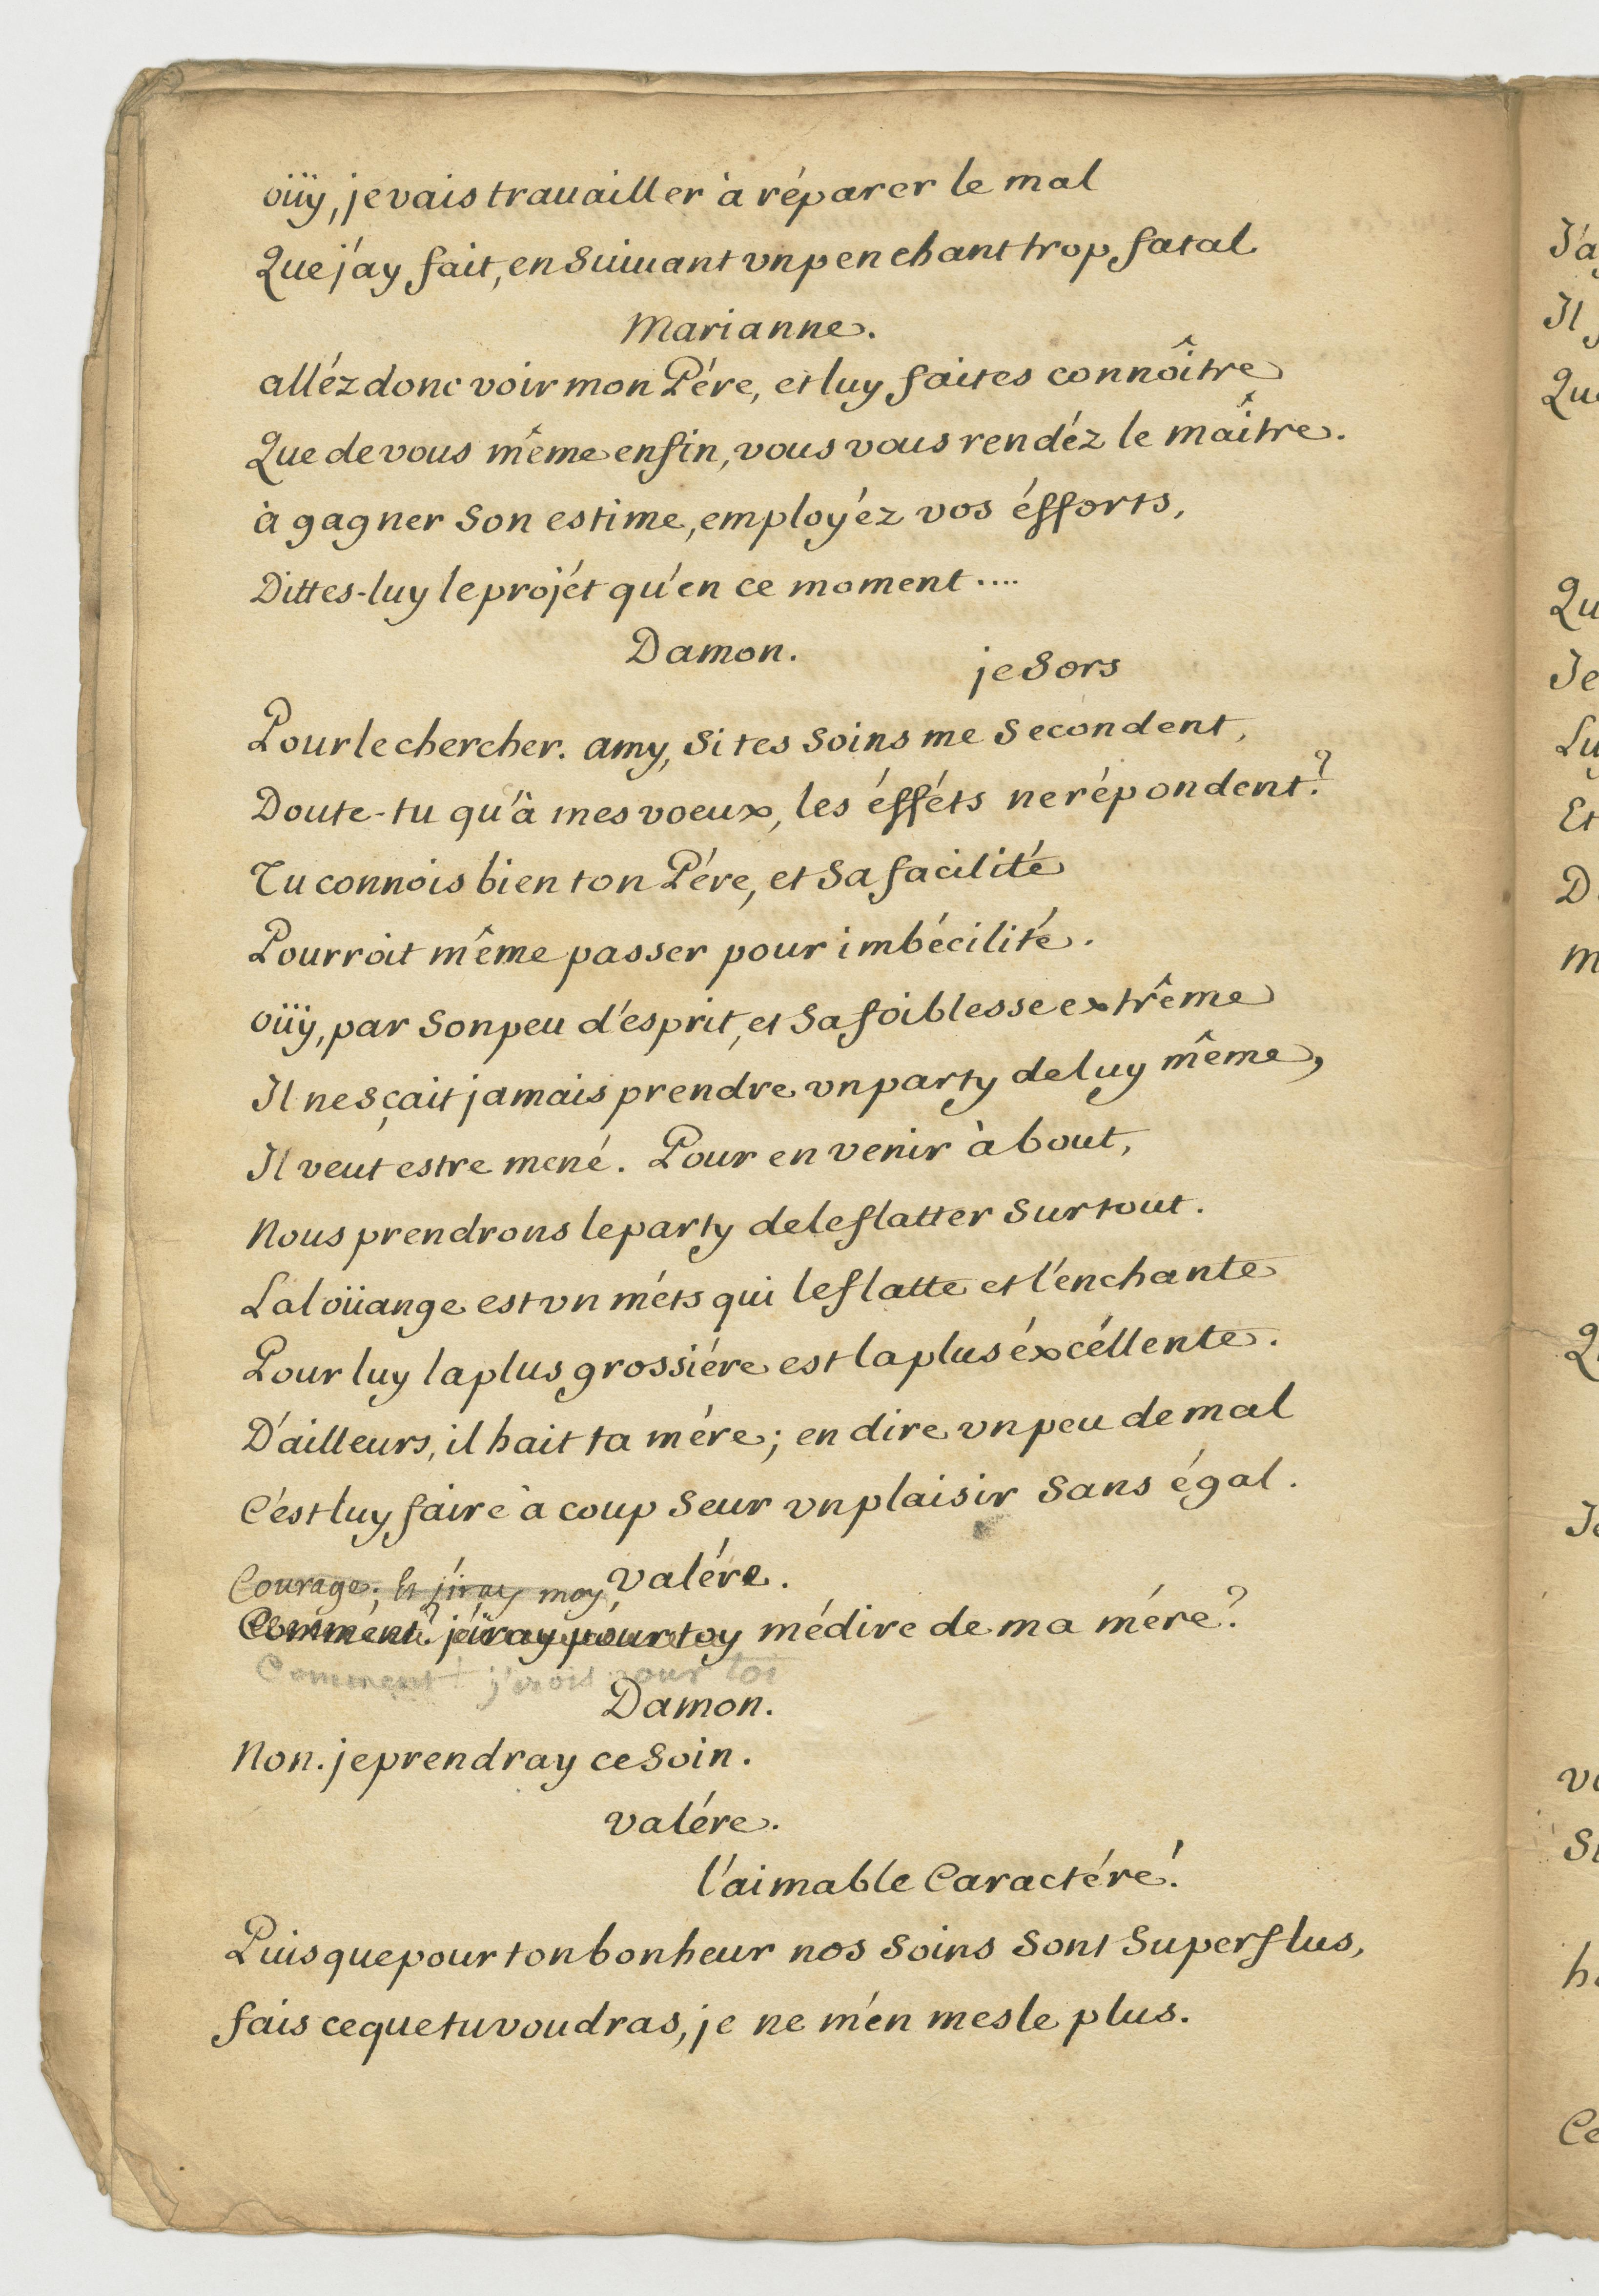 oüy, je vais trauailler à réparer le mal
Que j'ay fait, en Suiuant vn penchant trop fatal
Marianne.
alléz donc voir mon Pére, et luy faites connoître
Que de vous même enfin, vous vous rendéz le maître.
à gagner Son estime, employéz vos éfforts,
Dittes-luy le projét qu'en ce moment ....
Damon.
je Sors
Pour le chercher. amy, Si tes Soins me Secondent,
Doute-tu qu'à mes voeux, les éfféts ne répondent?
Tu connois bien ton Pére, et Sa facilité
Pourroit même passer pour imbécilité.
oüy, par Son peu d'esprit, et Sa foiblesse extrême
Il ne Sçait jamais prendre vn party de luy même,
Il veut estre mené. Pour en venir à bout,
Nous prendrons le party de le flatter Sur tout.
La loüange est vn méts qui le flatte et l'enchante
Pour luy la plus grossiére est la plus éxcéllente.
D'ailleurs, il hait ta mére; en dire vn peu de mal
C'est luy faire à coup Seur vn plaisir Sans égal.
Valére.
Courage; et j'iray moy,
Comment? j'iray pour toy médire de ma mére?
Comment! j'irois pour toi
Damon.
Non. je prendray ce Soin.
Valére.
l'aimable Caractére!
Puisque pour ton bonheur nos Soins Sont Superflus,
fais ce que tu voudras, je ne m'en mesle plus.
J'a
Il
Qu
Je
Lu
Et
D
m
Q
Je
h
Ce